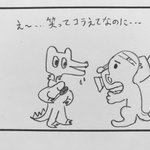 え〜‥ 笑ってコラえてなのに‥‥